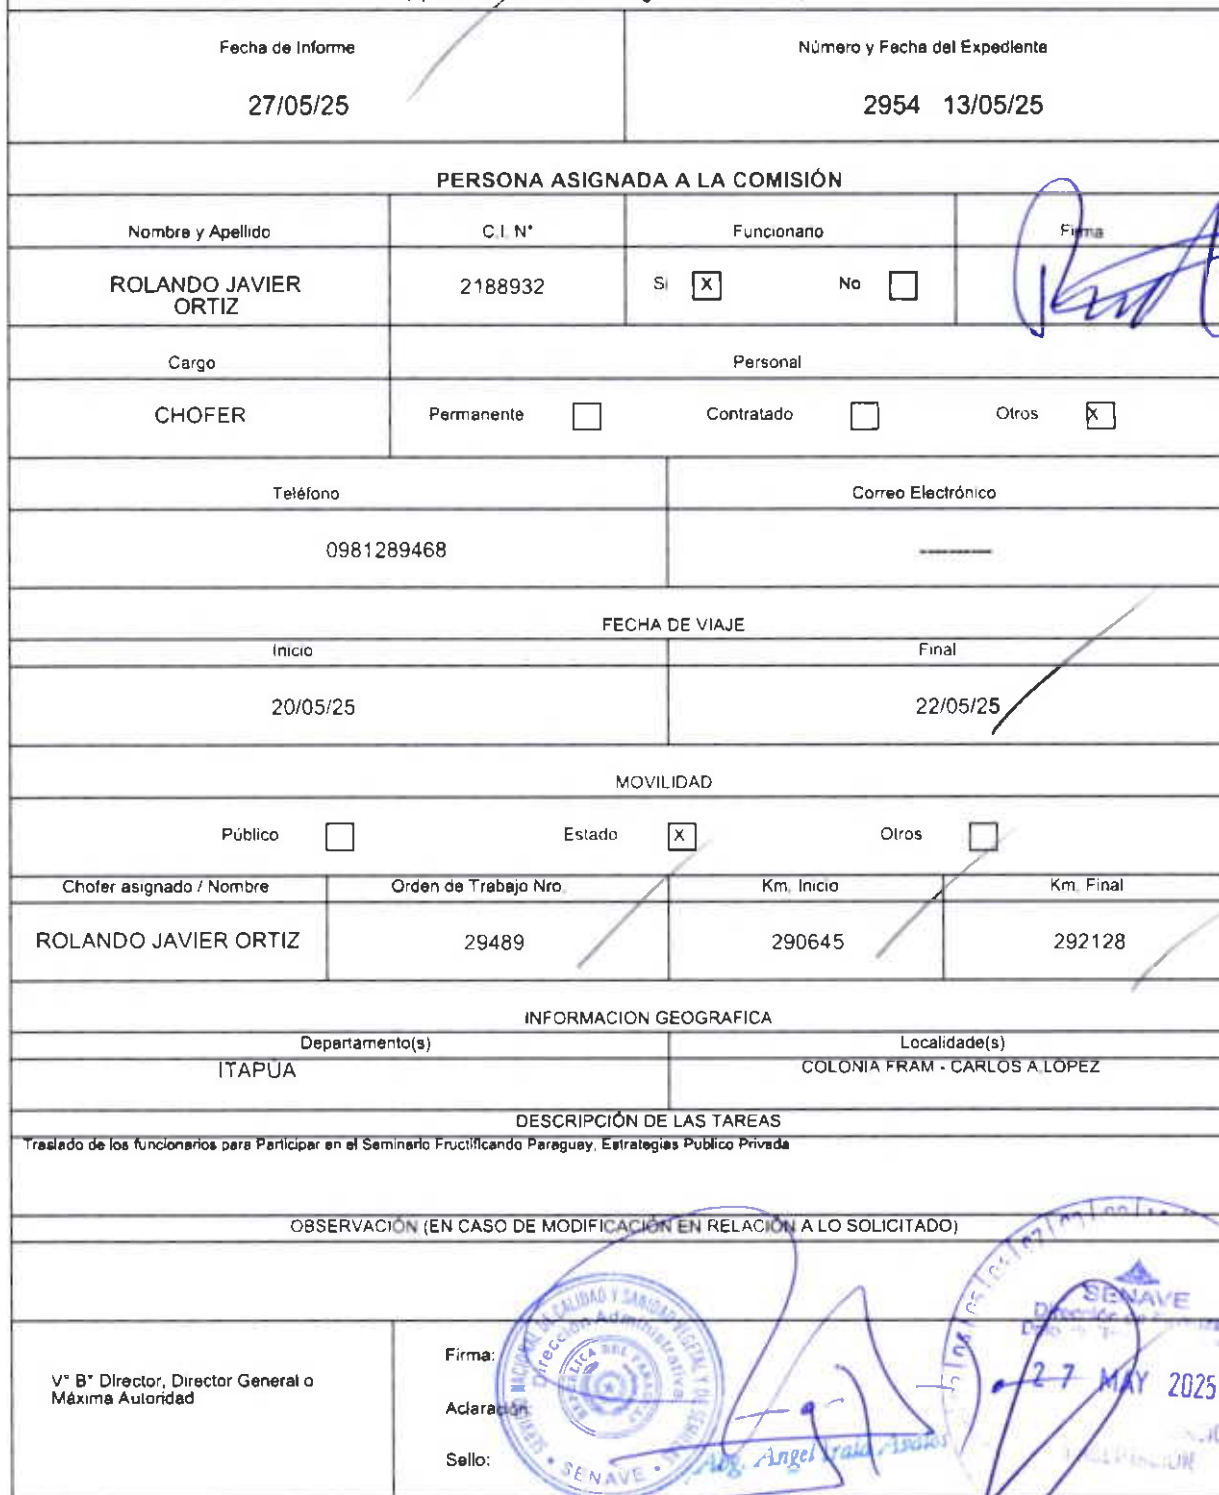 Fecha de Informe
Número y Fecha del Expediente
27/05/25
2954 13/05/25
PERSONA ASIGNADA A LA COMISIÓN
Nombre y Apellido
C.I. N°
Funcionario
Firma
ROLANDO JAVIER
ORTIZ
2188932
Si X
No
Cargo
Personal
CHOFER
Permanente
Contratado
Otros X
Teléfono
Correo Electrónico
0981289468
----------
FECHA DE VIAJE
Inicio
Final
20/05/25
22/05/25
MOVILIDAD
Público
Estado X
Otros
Chofer asignado / Nombre
Orden de Trabajo Nro.
Km. Inicio
Km. Final
ROLANDO JAVIER ORTIZ
29489
290645
292128
INFORMACION GEOGRAFICA
Departamento(s)
Localidade(s)
ITAPÚA
COLONIA FRAM - CARLOS A.LÓPEZ
DESCRIPCIÓN DE LAS TAREAS
Traslado de los funcionarios para Participar en el Seminario Fructificando Paraguay, Estrategias Publico Privada
OBSERVACIÓN (EN CASO DE MODIFICACIÓN EN RELACIÓN A LO SOLICITADO)
V° B° Director, Director General o
Máxima Autoridad
Firma:
Aclaración:
Sello:
Dirección Administrativa
SENAVE
Abg. Angel
SENAVE
27 MAY 2025